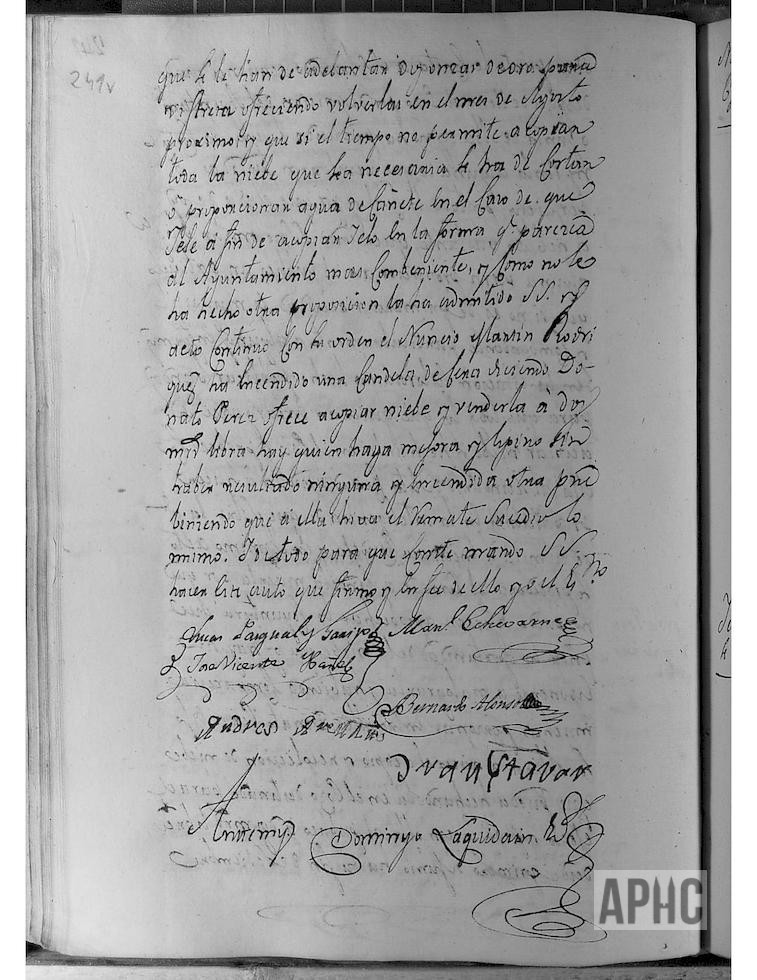 241v
que se le han de adelantar dos onzas de oro para
ofreciendo volverlas en el mes de Agosto
proximo; y que si el tiempo no permite acopiar
toda la niebe que sea necesaria se ha de Cortar
ô proporcionar agua de Cañete en el Caso de que
Yele a fin de acopiar Yelo en la forma q.e parezca
al Ayuntamiento mas Combeniente, y Como no se
ha hecho otra proposicion la ha admitido S.S. y
acto Continuo Con su orden el Nuncio Martin Rodri
guez ha Encendido una Candela de Cera diciendo Do-
nato Perez ofrece acopiar niebe y venderla à dos
mrs libra hay quien haga mejora y espiro sin
haber resultado ninguna y Encendida otra pre
biniendo que a ella hiva el Remate Sucedio lo
mimo. Y de todo para que Conste mando S.S.
hacer este auto que firmo y en fee de ello yo el Ess.no
Lucas Pasqual y Man.l Echevarne
Jose Vicente Ybañez
Bernardo Alonso
Andres
Juan
Antemy Domingo Laquidain
APHC